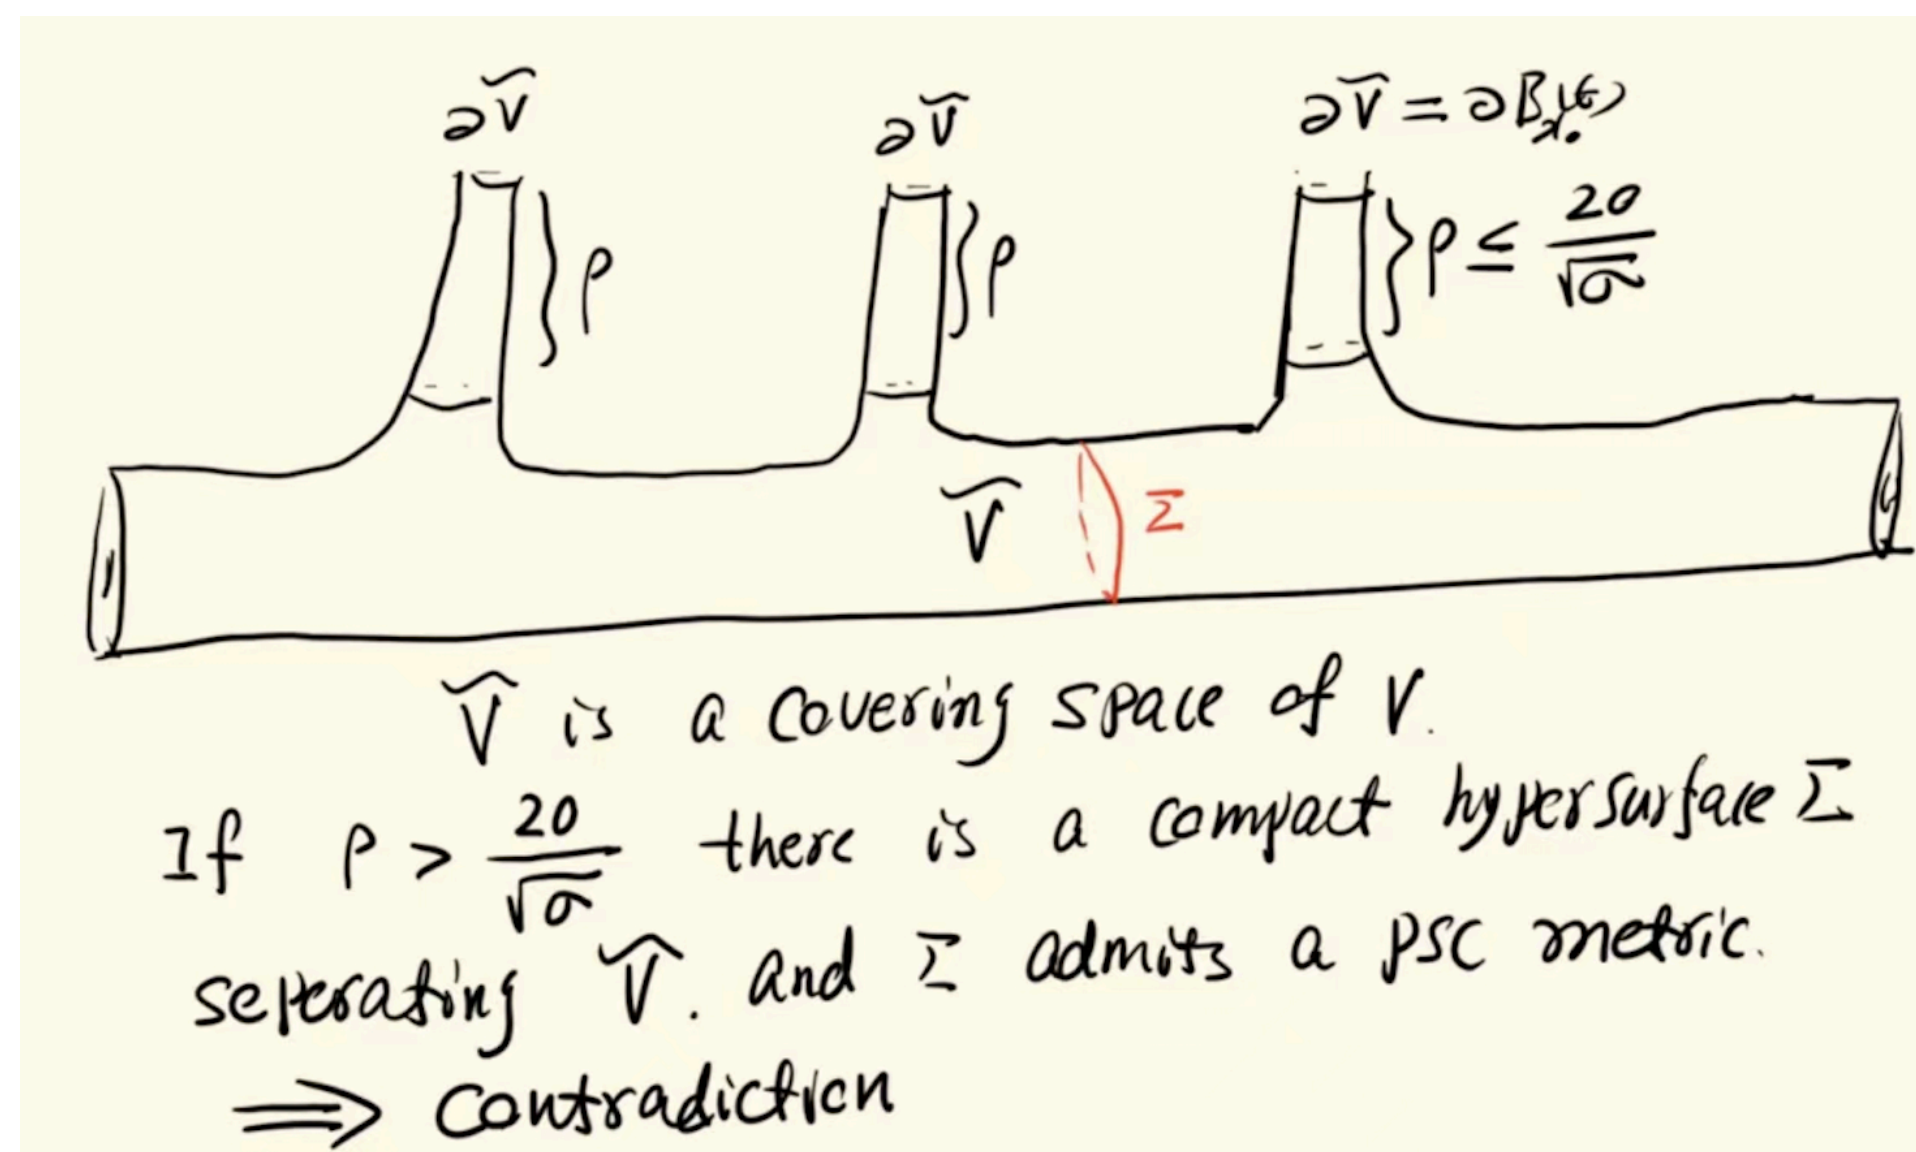 ∂Ṽ
∂Ṽ
∂Ṽ = ∂B_{x₀}(ε)
ρ
ρ
ρ ≤ 20/√σ
Ṽ
Σ
Ṽ is a covering space of V.
If ρ > 20/√σ there is a compact hypersurface Σ
seperating Ṽ. and Σ admits a PSC metric.
⟹ Contradiction